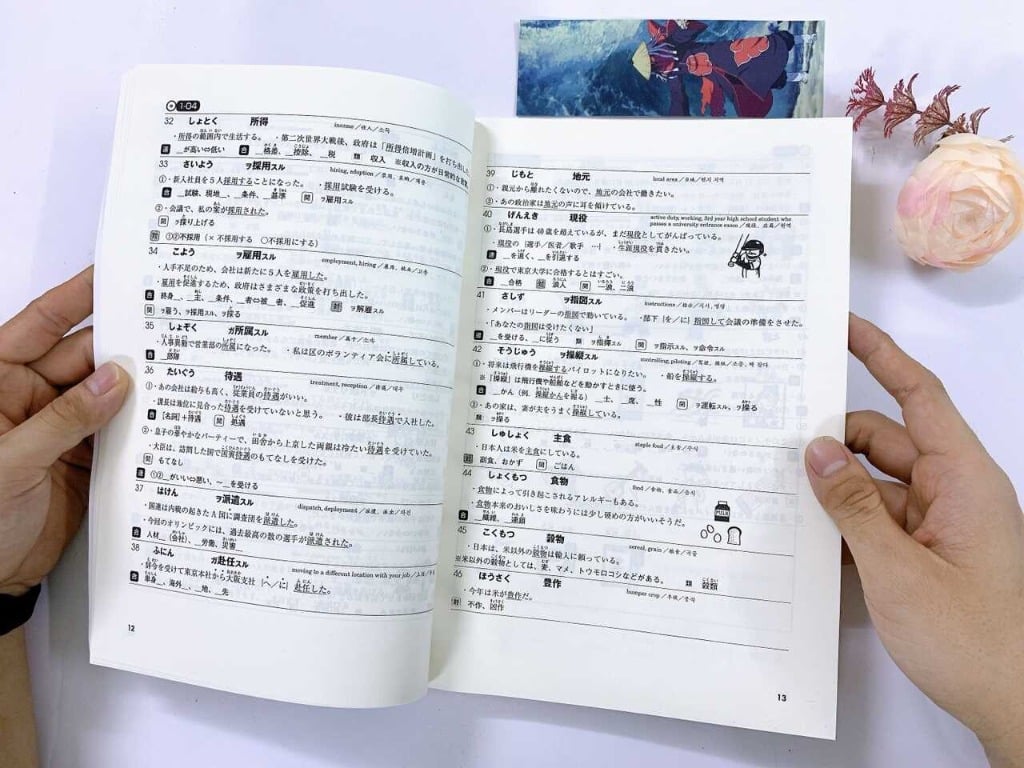 1-04
32 しょとく 所得 income／收入／소득
・所得の範囲内で生活する。 ・第二次世界大戦後、政府は「所得倍増計画」を打ち出した。
連 __が高い⇔低い 合 __格差、__控除、__税 類 収入 ※収入の方が日常的な言葉。
33 さいよう ヲ採用スル hiring, adoption
①・新入社員を5人採用することになった。 ・採用試験を受ける。
合 __試験、現地__、__条件、__基準 関 ヲ雇用スル
②・会議で、私の案が採用された。
関 ヲ採り上げる
対 ①②不採用 (× 不採用する ○不採用にする)
34 こよう ヲ雇用スル employment, hiring
・人手不足のため、会社は新たに5人を雇用した。
・雇用を促進するため、政府はさまざまな政策を打ち出した。
合 終身__、__主、__条件、__者⇔被__者、__促進 対 ヲ解雇スル
関 ヲ雇う、ヲ採用スル、ヲ採る
35 しょぞく ガ所属スル member
・人事異動で営業部の所属になった。 ・私は区のボランティア会に所属している。
合 __部隊
36 たいぐう 待遇 treatment, reception
①・あの会社は給与も高く、従業員の待遇がいい。
・課長は地位に見合った待遇を受けていないと思う。 ・彼は部長待遇で入社した。
合 [名詞]+待遇 関 処遇
②・息子の華やかなパーティーで、田舎から上京した両親は冷たい待遇を受けていた。
・大臣は、訪問した国で国賓待遇のもてなしを受けた。
関 もてなし
連 ①②__がいい⇔悪い、〜__を受ける
37 はけん ヲ派遣スル dispatch, deployment
・国連は内戦の起きたA国に調査団を派遣した。
・今回のオリンピックには、過去最高の数の選手が派遣された。
合 人材__(会社)、__労働、災害__
38 ふにん ガ赴任スル moving to a different location with your job
・辞令を受けて東京本社から大阪支社{へ／に}赴任した。
合 単身__、海外__、__地、__先
12
39 じもと 地元 local area
①・親元から離れたくないので、地元の会社で働きたい。
②・あの政治家は地元の声に耳を傾けている。
40 げんえき 現役 active duty, working, 3rd year high school student who passes a university entrance exam
①・長島選手は40歳を超えているが、まだ現役としてがんばっている。
・現役の{選手／医者／歌手 …} ・生涯現役を貫きたい。
連 __を退く、__を引退する
②・現役で東京大学に合格するとはすごい。
合 __合格 対 浪人 関 一浪、二浪
41 さしず ヲ指図スル instructions
・メンバーはリーダーの指図で動いている。 ・部下{を／に}指図して会議の準備をさせた。
・「あなたの指図は受けたくない」
連 __を受ける、__に従う 類 ヲ指揮スル 関 ヲ指示スル、ヲ命令スル
42 そうじゅう ヲ操縦スル controlling, piloting
①・将来は飛行機を操縦するパイロットになりたい。 ・船を操縦する。
※「操縦」は飛行機や船舶などを動かすときに使う。
合 __かん (例. 操縦かんを握る) __士、__席、__性 関 ヲ運転スル、ヲ操る
②・あの家は、妻が夫をうまく操縦している。
類 ヲ操る
43 しゅしょく 主食 staple food
・日本人は米を主食にしている。
対 副食、おかず 関 ごはん
44 しょくもつ 食物 food
・食物によって引き起こされるアレルギーもある。
・食物本来のおいしさを味わうには少し硬めの方がいいそうだ。
合 __繊維、__連鎖
45 こくもつ 穀物 cereal, grain
・日本は、米以外の穀物は輸入に頼っている。
※米以外の穀物としては、麦、マメ、トウモロコシなどがある。 類 穀類
46 ほうさく 豊作 bumper crop
・今年は米が豊作だ。
対 不作、凶作
13